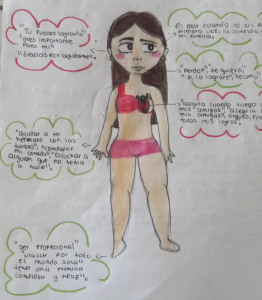 "Tu puedes lograrlo"
eres importante
para mi"
"Gracias por ayudarme"
El mar cuando lo vi por
primera vez, la comida de
mi familia.
"Perdon", te quiero
"si lo lograre", te amo
alegria cuando juego con
mis "amigos", alegria
mis amigas, orgullo, por
todos mis logros.
"Ayudar a mi
hermano con las
tareas", "compartir
mi comida" "Escuchar a
alguien que no tenia
a nadie".
"Ser profesional"
"viajar por todo
el mundo sola"
tener una familia
completa y feliz".